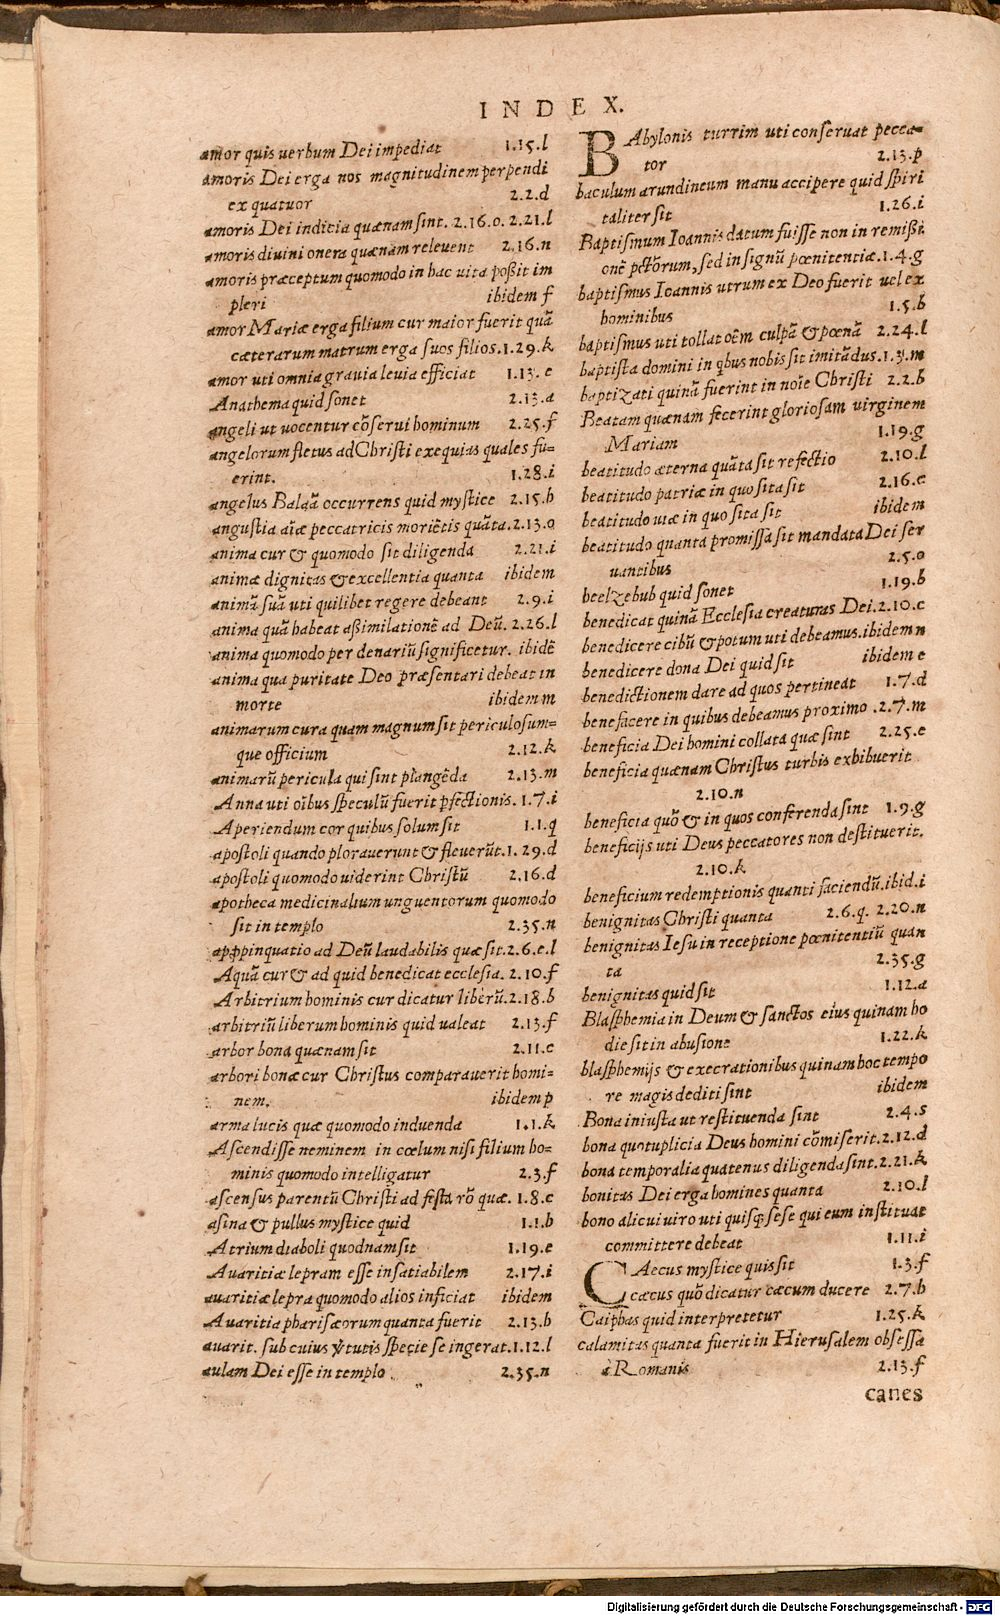 INDEX.
amor quis uerbum Dei impediat 1.15.l
amoris Dei erga nos magnitudinem perpendi
ex quatuor 2.2.d
amoris Dei indicia quænam sint. 2.16.o. 2.21.l
amoris diuini onera quænam releuent 2.16.n
amoris præceptum quomodo in hac uita poßit im
pleri ibidem f
amor Mariæ erga filium cur maior fuerit quã
cæterarum matrum erga suos filios. 1.29.k
amor uti omnia grauia leuia efficiat 1.13.e
Anathema quid sonet 2.13.a
angeli ut uocentur cõserui hominum 2.25.f
angelorum fletus ad Christi exequias quales fu-
erint. 1.28.i
angelus Balaã occurrens quid mystice 2.15.b
angustia aĩæ peccatricis moriẽtis quãta. 2.13.o
anima cur & quomodo sit diligenda 2.21.i
animæ dignitas & excellentia quanta ibidem
animã suã uti quilibet regere debeant 2.9.i
anima quã habeat aßimilationẽ ad Deũ. 2.26.l
anima quomodo per denariũ significetur. ibidẽ
anima qua puritate Deo præsentari debeat in
morte ibidem m
animarum cura quam magnum sit periculosum-
que officium 2.12.k
animarũ pericula qui sint plangẽda 2.13.m
Anna uti oĩbus speculũ fuerit ꝑfectionis. 1.7.i
Aperiendum cor quibus solum sit 1.1.q
apostoli quando plorauerunt & fleuerũt. 1.29.d
apostoli quomodo uiderint Christũ 2.16.d
apotheca medicinalium unguentorum quomodo
sit in templo 2.35.n
apꝓpinquatio ad Deũ laudabilis quæ sit. 2.6.e.l
Aquã cur & ad quid benedicat ecclesia. 2.10.f
Arbitrium hominis cur dicatur liberũ. 2.18.b
arbitriũ liberum hominis quid ualeat 2.13.f
arbor bona quænam sit 2.11.c
arbori bonæ cur Christus comparauerit homi-
nem. ibidem p
arma lucis quæ quomodo induenda 1.1.k
Ascendisse neminem in cœlum nisi filium ho-
minis quomodo intelligatur 2.3.f
ascensus parentũ Christi ad festa rõ quæ. 1.8.c
asina & pullus mystice quid 1.1.b
Atrium diaboli quodnam sit 1.19.e
Auaritiæ lepram esse insatiabilem 2.17.i
auaritiæ lepra quomodo alios inficiat ibidem
Auaritia pharisæorum quanta fuerit 2.13.b
auarit. sub cuius ṽtutis specie se ingerat. 1.12.l
aulam Dei esse in templo 2.35.n
BAbylonis turrim uti conseruat pecca-
tor 2.13.p
baculum arundineum manu accipere quid spiri
taliter sit 1.26.i
Baptismum Ioannis datum fuisse non in remißi
onẽ pctõrum, sed in signũ pœnitentiæ. 1.4.g
baptismus Ioannis utrum ex Deo fuerit uel ex
hominibus 1.5.b
baptismus uti tollat oẽm culpã & pœnã 2.24.l
baptista domini in qbus nobis sit imitãdus. 1.3.m
baptizati quinã fuerint in noĩe Christi 2.2.b
Beatam quænam fecerint gloriosam uirginem
Mariam 1.19.g
beatitudo æterna quãta sit refectio 2.10.l
beatitudo patriæ in quo sita sit 2.16.e
beatitudo uiæ in quo sita sit ibidem
beatitudo quanta promissa sit mandata Dei ser
uantibus 2.5.o
beelzebub quid sonet 1.19.b
benedicat quinã Ecclesia creaturas Dei. 2.10.c
benedicere cibũ & potum uti debeamus. ibidem n
benedicere dona Dei quid sit ibidem e
benedictionem dare ad quos pertineat 1.7.d
benefacere in quibus debeamus proximo. 2.7.m
beneficia Dei homini collata quæ sint 2.25.e
beneficia quænam Christus turbis exhibuerit
2.10.n
beneficia quõ & in quos conferenda sint 1.9.g
beneficijs uti Deus peccatores non destituerit.
2.10.k
beneficium redemptionis quanti faciendũ. ibid. i
benignitas Christi quanta 2.6.q. 2.20.n
benignitas Iesu in receptione pœnitentiũ quan
ta 2.35.g
benignitas quid sit 1.12.a
Blasphemia in Deum & sanctos eius quinam ho
die sit in abusione 1.22.k
blasphemijs & execrationibus quinam hoc tempo
re magis dediti sint ibidem
Bona iniusta ut restituenda sint 2.4.s
bona quotuplicia Deus homini cõmiserit. 2.12.d
bona temporalia quatenus diligenda sint. 2.21.k
bonitas Dei erga homines quanta 2.10.l
bono alicui uiro uti quisq; sese qui eum instituat
committere debeat 1.11.i
CAecus mystice quis sit 1.3.f
cæcus quõ dicatur cæcum ducere 2.7.b
Caiphas quid interpretetur 1.25.k
calamitas quanta fuerit in Hierusalem obsessa
à Romanis 2.13.f
canes
Digitalisierung gefördert durch die Deutsche Forschungsgemeinschaft - DFG